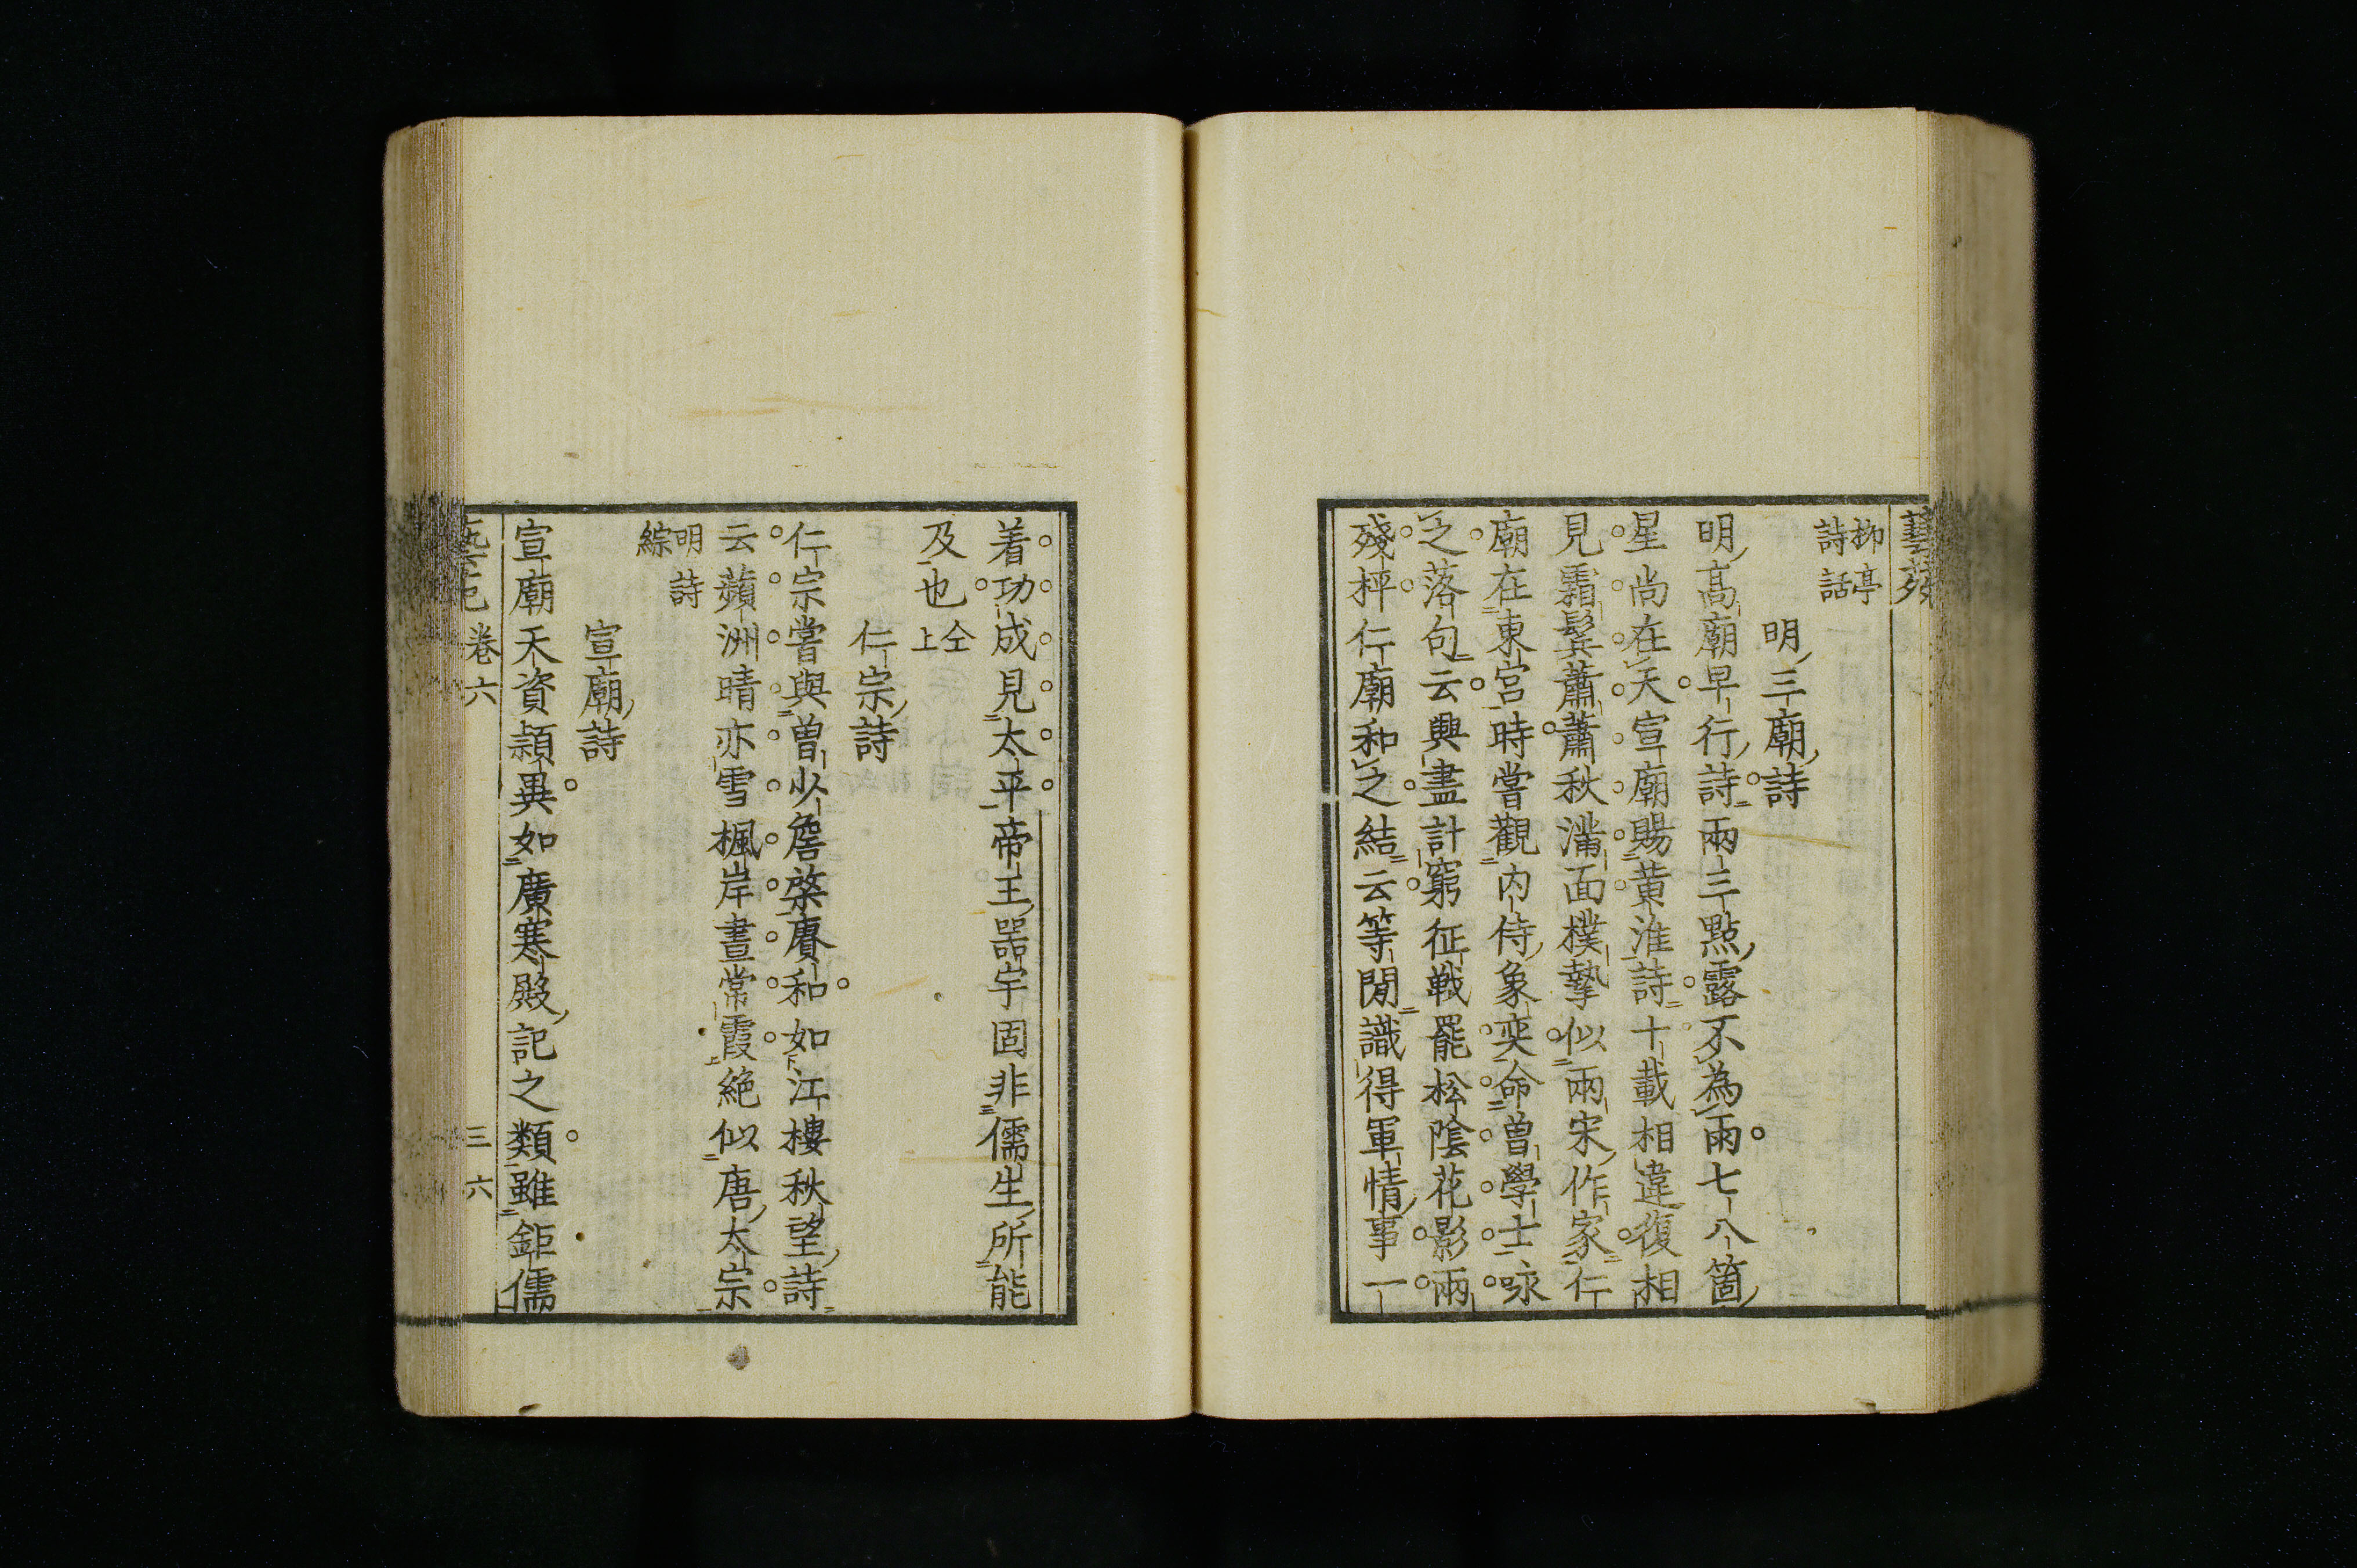 藝苑
柳亭
詩話
明三廟詩
明高廟早行詩兩三點露不為雨七八箇
星尚在天宣廟賜黃淮詩十載相違復相
見霜鬂蕭蕭秋滿面樸摯似兩宋作家仁
廟在東宮時嘗觀內侍象奕命曾學士咏
之落句云興盡計窮征戦罷松陰花影兩
殘枰仁廟和之結云等閒識得軍情事一
着功成見太平帝王器宇固非儒生所能
及也仝
上
仁宗詩
仁宗嘗與曾少詹棨賡和如江樓秋望詩
云蘋洲晴亦雪楓岸晝常霞絕似唐太宗
明詩
綜
宣廟詩
宣廟天資頴異如廣寒殿記之類雖鉅儒
卷六 三六